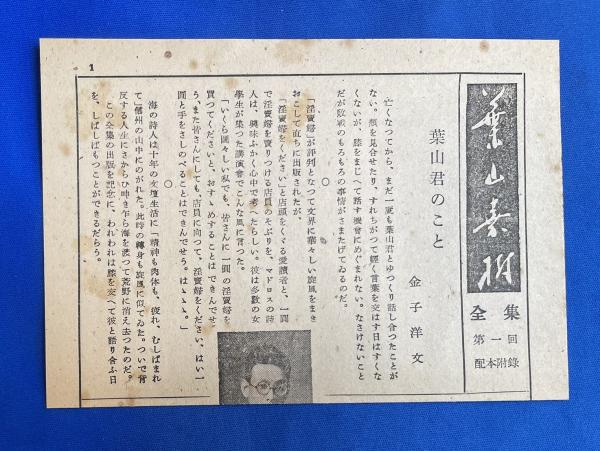 葉山嘉樹
全集
第一回
配本附錄
1
葉山君のこと
金子洋文
亡くなつてから、まだ一度も葉山君とゆつくり話し合つたことが
ない。顏を見合せたり、すれちがつて輕く言葉を交はす日はすくな
くないが、膝をまじへて話す機會にめぐまれない。なさけないこと
だが敗戰のもろもろの事情がさまたげてゐるのだ。
○
「淫賣婦」が評判となつて文界に華々しい旋風をまき
おこして直ちに出版されたが、
「淫賣婦をください」と店頭をくゞる愛讀者と、一圓
で淫賣婦を賣りつける店員のそぶりを、マドロスの詩
人は、興味ふかく心中で考へたらしい。彼は多數の女
學生が集つた講演會でこんな風に言つた。
「いくら圖々しい私でも、皆さんに一圓の淫賣婦を
買つてくださいと、おすゝめすることはできんでせ
う、また皆さんにしても、店員に向つて、淫賣婦をください、はい一
圓と手をさしのべることはできんでせう。はゝゝ。」
○
海の詩人は十年の文壇生活に「精神も肉體も、疲れ、むしばまれ
て」信州の山中にのがれた。此時の轉身も旋風に似てゐた。ついで背
反する人生にさからひ呻き乍ら海を渡つて荒野に消え去つたのだ。
この全集の出版を記念に、われわれは膝を交へて彼と語り合ふ日
を、しばしばもつことができるだらう。